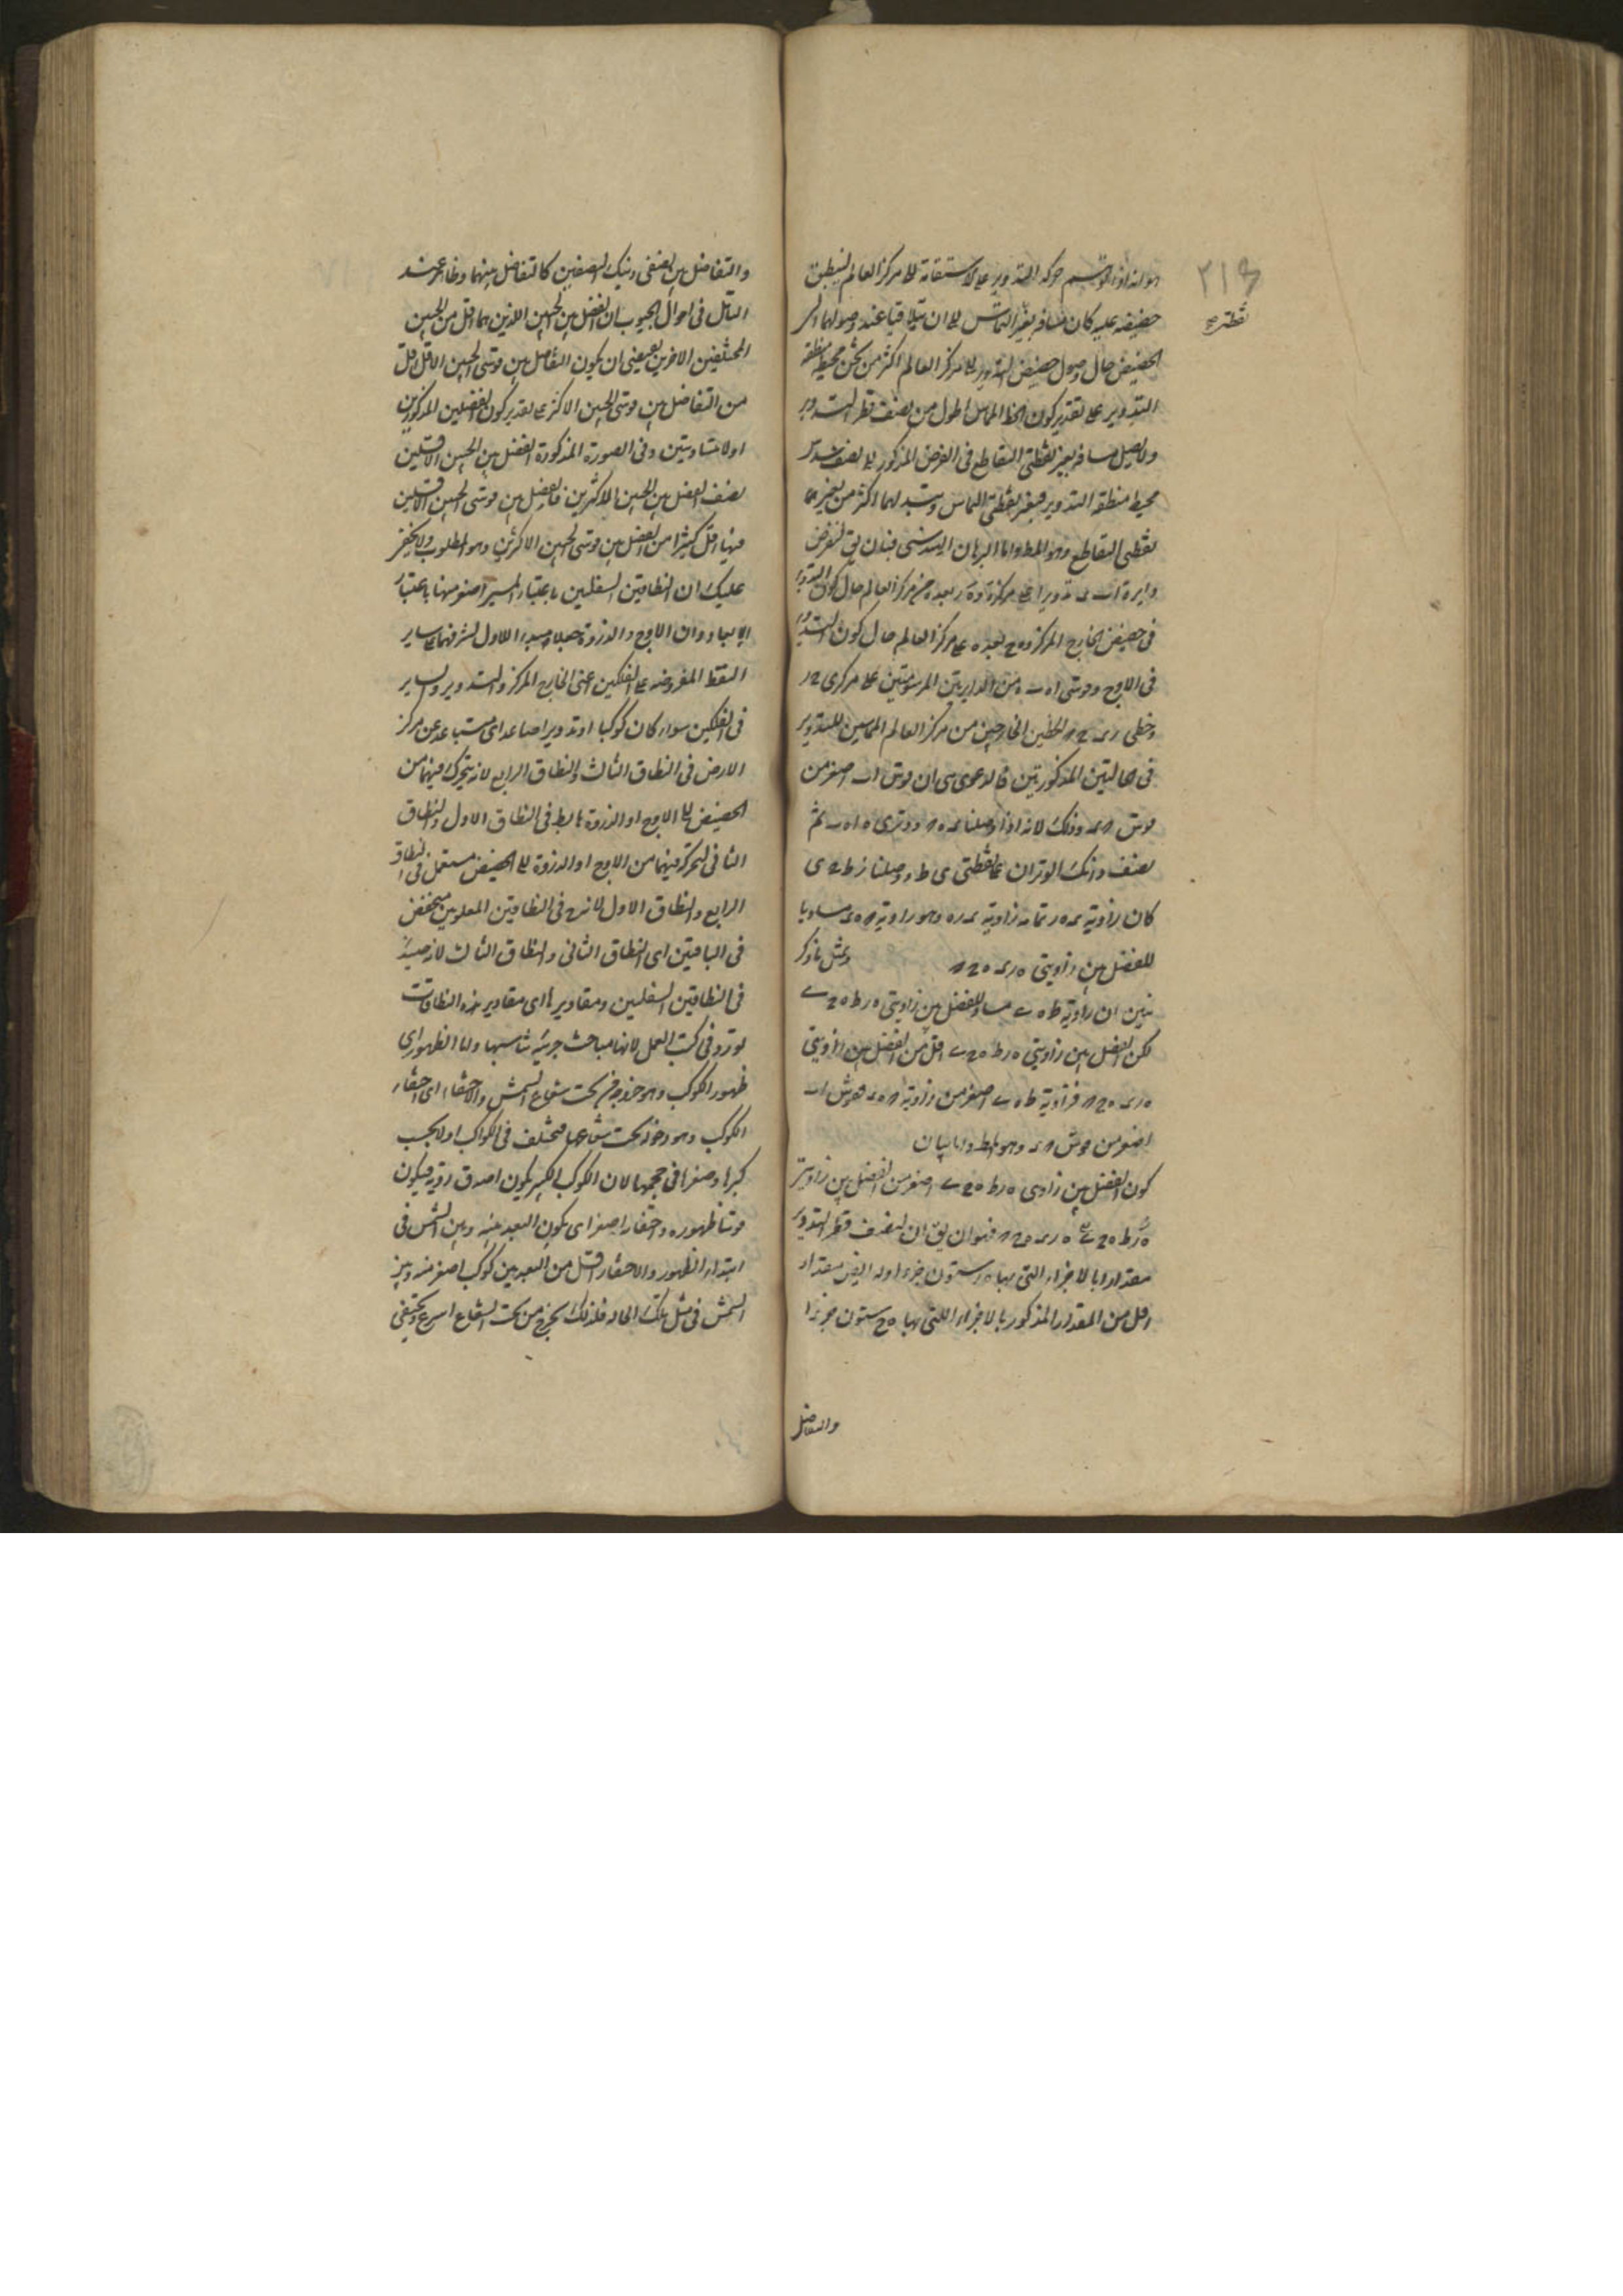 ٣١٩
نقطتی
هو انه اذا توهم حركة التدوير على الاستقامة الى مركز العالم لينطبق
حضيضه عليه كان مسافة بغير التماس الى ان يتلاقيا عند وصولهما الى
الحضيض حال وصول حضيض التدوير الى مركز العالم اكثر من ثمن محيط منطقة
التدوير على تقدير كون الخط المماس اطول من نصف قطر التدوير
ولا يصل مسافة تغير نقطتى التقاطع فى الفرض المذكور الى نصف سدس
محيط منطقة التدوير فتغير نقطتى التماس وتبدلهما اكثر من تغير
نقطتى التقاطع وهو المط واما البرهان الهندسى فبان يق لنفرض
دايرة اب تدويرا على مركز ه و ه ر بعده من مركز العالم حال كون التدوير
فى حضيض الخارج المركز و ه ح بعده عن مركز العالم حال كون التدوير
فى الاوج وقوسى ا ه ب من الدايرتين المرسومتين على مركزى ح ر
وخطى الخطين الخارجين من مركز العالم المماسين للتدوير
فى الحالتين المذكورتين فالدعوى ان قوس اب اصغر من
قوس وذلك لانه اذا وصلنا ووترى ه ا ه ب ثم
نصف ذانك الوتران على نقطتى ى ط ووصلنا ر ط ح ى
كان زاوية تمام زاوية وهو زاوية مساويا
للفضل بين زاويتى وبمثل ما ذكر
نبين ان زاوية ط ه ى مساو للفضل بين زاويتى ه ر ط ه ح ى
لكن الفضل بين زاويتى ه ر ط ه ح ى اقل من الفضل بين زاويتى
فزاوية ط ه ى اصغر من زاوية فقوس اب
اصغر من قوس وهو المط واما بيان
كون الفضل بين زاويتى ه ر ط ه ح ى اصغر من الفضل بين زاويتى
فهو ان يق ان لنصف قطر التدوير
مقدارا بالاجزاء التى بها ه ر ستون جزءا وله ايض مقدار
اقل من المقدار المذكور بالاجزاء اللتى بها ه ح ستون جزءا
والتفاضل
والتفاضل بين نصفى ذينك النصفين كالتفاضل بينهما وظاهر عند
التامل فى احوال الجيوب ان الفضل بين الجيبين اللذين هما اقل من الجيبين
المختلفين الاخرين يقتضى ان يكون التفاضل بين قوسى الجيبين الاقل اقل
من التفاضل بين قوسى الجيبين الاكثر على تقدير كون الفضلين المذكورين
اولا متساويين وفى الصورة المذكورة الفضل بين الجيبين الاقلين
نصف الفضل بين الجيبين الاكثرين فالفضل بين قوسى الجيبين الاقلين
فيها اقل كثيرا من الفضل بين قوسى الجيبين الاكثرين وهو المطلوب ولا يخفى
عليك ان النطاقين السفلين باعتبار المسير اصغر منهما باعتبار
الابعاد وان الاوج والذروة جعلا مبدءا للاول لشرفهما على ساير
النقط المفروضة على الفلكين اعنى الخارج المركز والتدوير والساير
فى الفلكين سواء كان كوكبا او تدويرا صاعد اى متباعد عن مركز
الارض فى النطاق الثالث والنطاق الرابع لانه يتحرك فيهما من
الحضيض الى الاوج او الذروة هابط فى النطاق الاول والنطاق
الثانى لتحركه فيهما من الاوج او الذروة الى الحضيض مستعمل فى النطاق
الرابع والنطاق الاول لانه ح فى النطاقين العلويين منخفض
فى الباقيين اى النطاق الثانى والنطاق الثالث لانه حينئذ
فى النطاقين السفلين ومقاديرها اى مقادير هذه النطاقات
تورد فى كتب العمل لانها مباحث جزئية تناسبها واما الظهور اى
ظهور الكوكب وهو خروجه من تحت شعاع الشمس والاختفاء اى اختفاء
الكوكب وهو دخوله تحت شعاعها فمختلف فى الكواكب اولا بحسب
كبرها وصغرها فى حجمها لان الكوكب الكبير يكون اصدق روية فيكون
قوتا ظهوره واختفاءه اصغر اى يكون البعد بينه وبين الشمس فى
ابتداء الظهور والاختفاء اقل من البعد بين كوكب اصغر منه وبين
الشمس فى مثل تلك الحال فلذلك يخرج من تحت الشعاع اسرع ويختفى